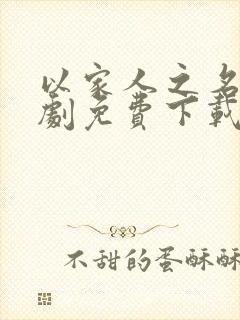 以家人之名
劇免費下載
不甜的蛋酥酥